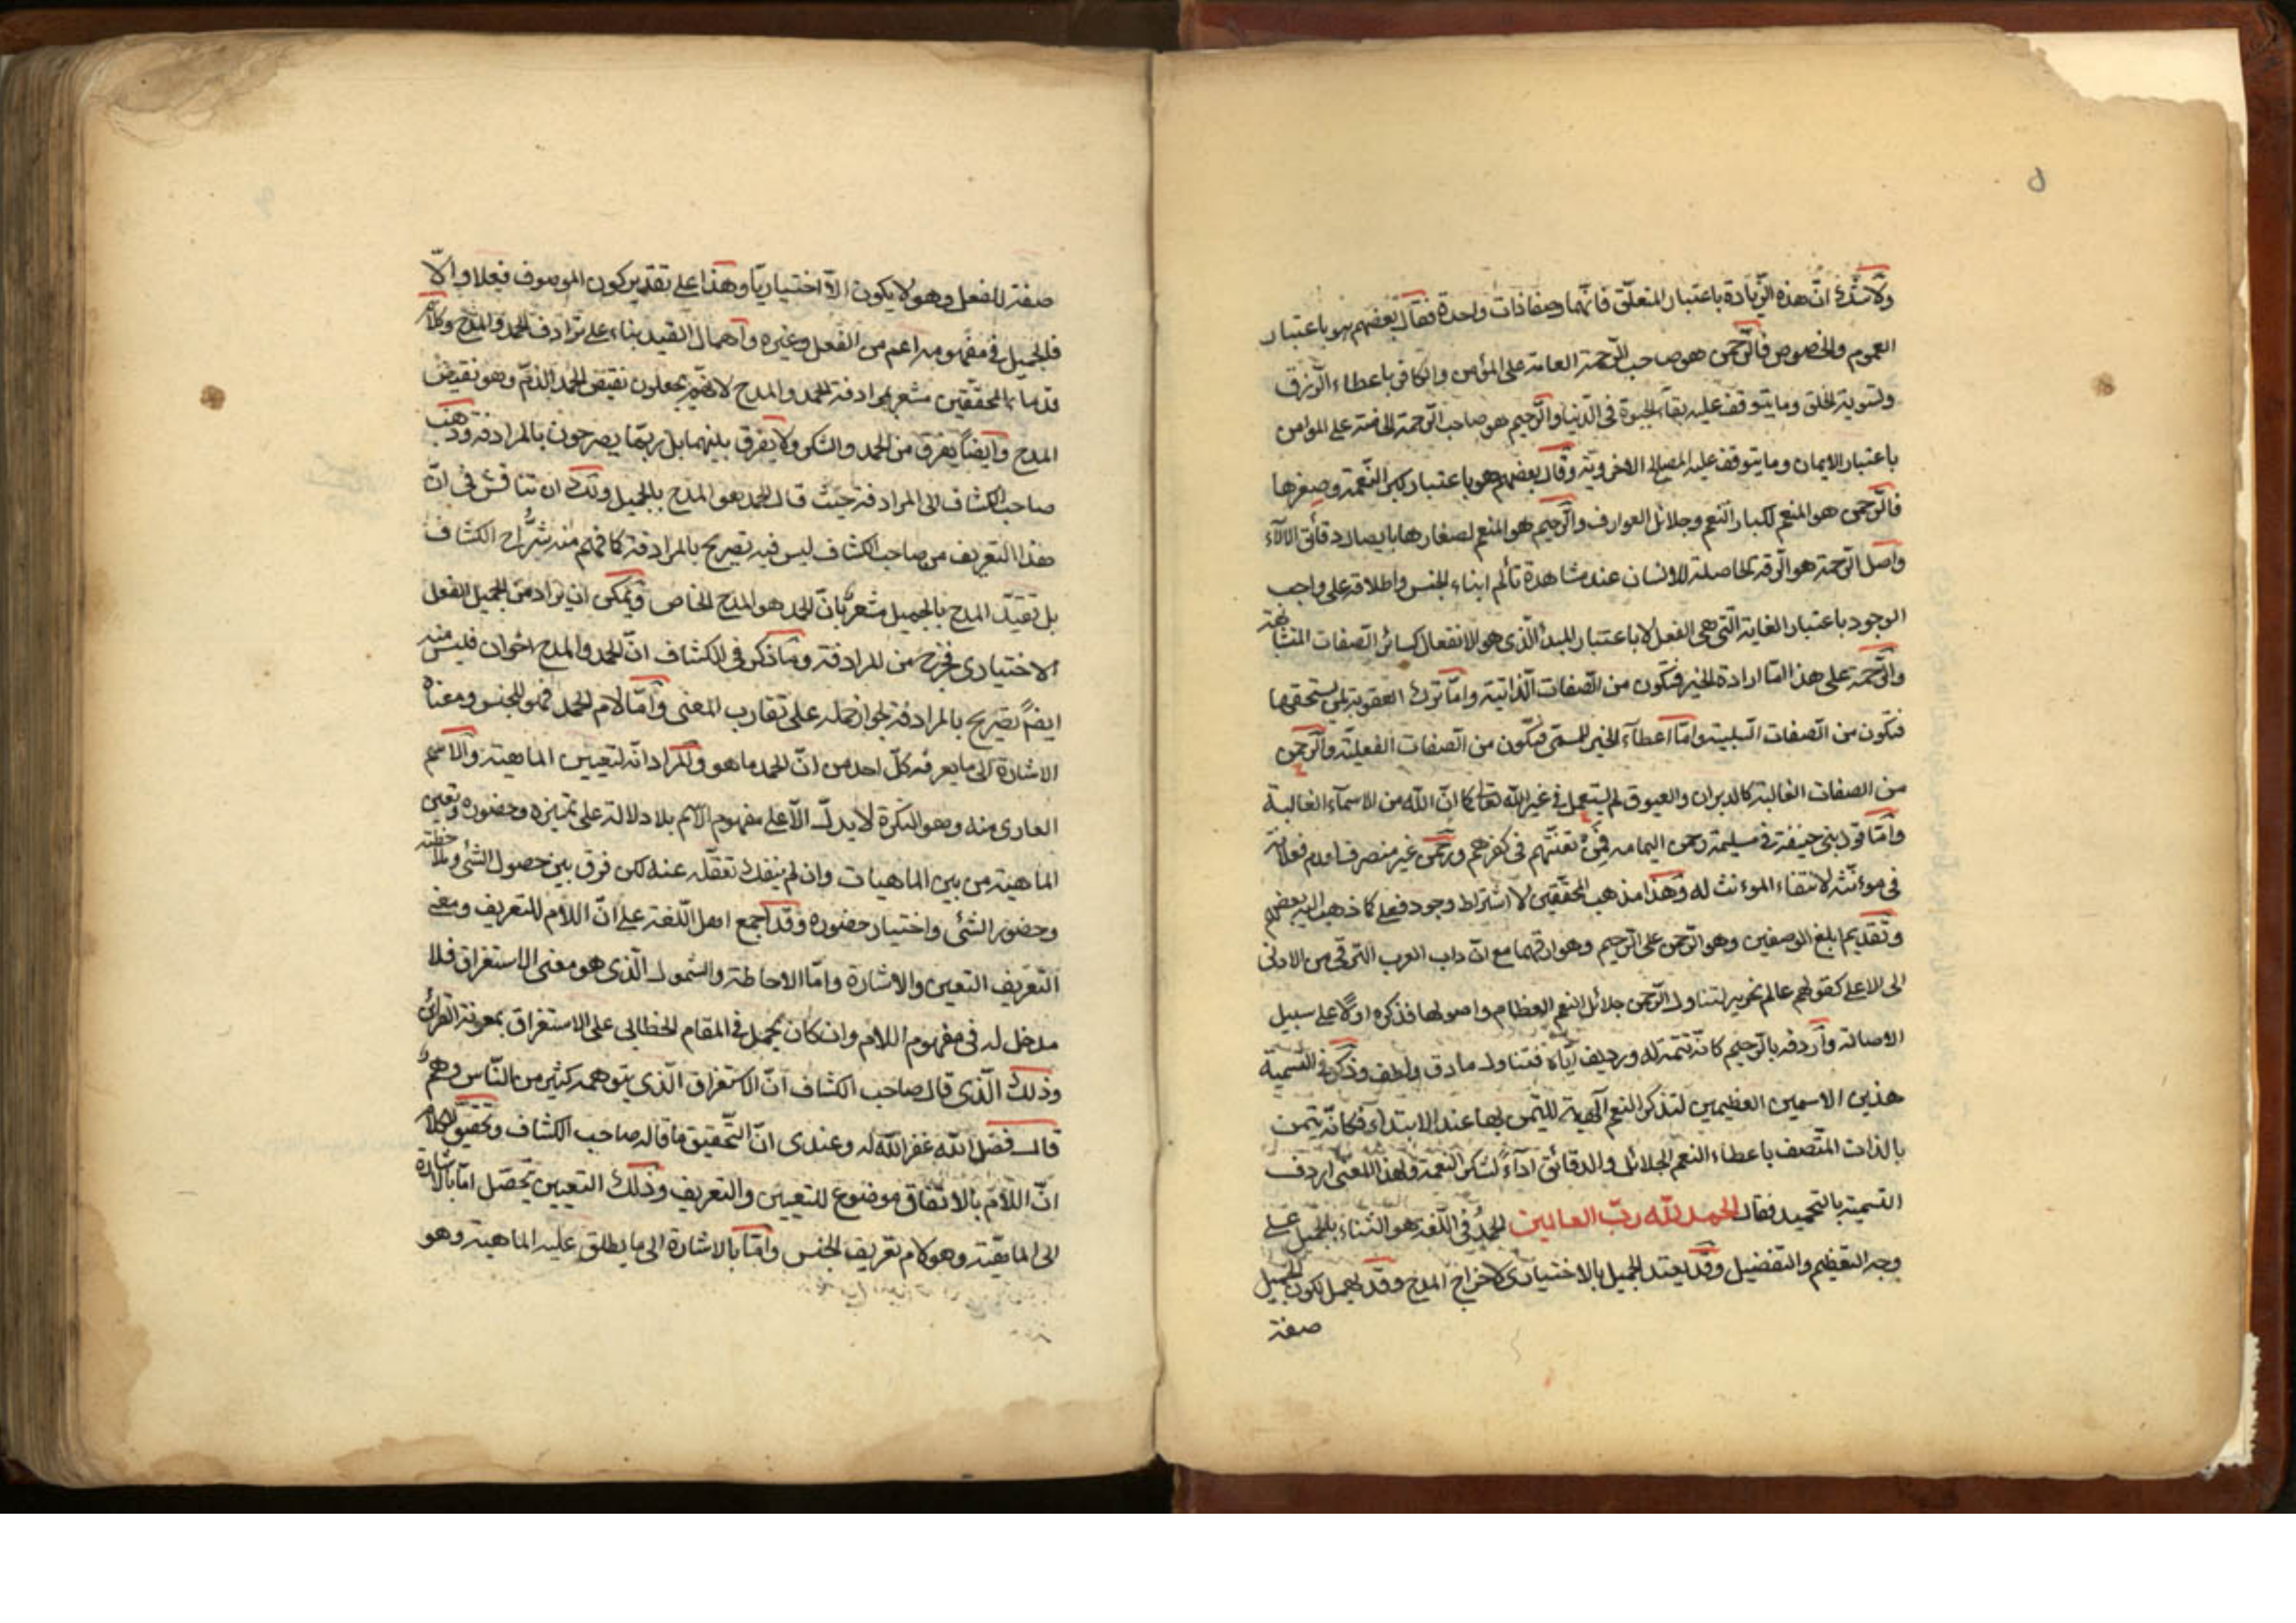 ٥
ولا شك ان هذه الزيادة باعتبار المتعلق فانهما وصفا ذات واحدة فقال بعضهم هو باعتبار
العموم والخصوص فالرحمن هو صاحب الرحمة العامة على المؤمن والكافر باعطاء الرزق
وتسوية الخلق وما يتوقف عليه بقاء الحيوة في الدنيا والرحيم هو صاحب الرحمة الخاصة على المؤمن
باعتبار الايمان وما يتوقف عليه المصالح الاخروية وقال بعضهم هو باعتبار كبر النعمة وصغرها
فالرحمن هو المنعم لكبار النعم وجلائل العوارف والرحيم هو المنعم لصغارها بايصال دقائق الآلاء
واصل الرحمة هو الرقة الحاصلة للانسان عند مشاهدة تألم ابناء الجنس واطلاقه على واجب
الوجود باعتبار الغاية التي هي الفعل لا باعتبار المبدأ الذي هو الانفعال كسائر الصفات المتشابهة
والرحمة على هذا اما ارادة الخير فتكون من الصفات الذاتية واما ترك العقوبة لمن يستحقها
فتكون من الصفات السلبية واما اعطاء الخير فتكون من الصفات الفعلية والرحمن
من الصفات الغالبة كالدبران والعيوق لم يستعمل في غير الله تعالى كما ان الله من الاسماء الغالبة
واما قول بني حنيفة في مسيلمة رحمن اليمامه فمن تعنتهم في كفرهم ورحمن غير منصرف لعدم فعلانة
في مؤنثه لانتفاء المؤنث له وهذا مذهب المحققين لا اشتراط وجود فعلى كما ذهب اليه بعضهم
وتقديم ابلغ الوصفين وهو الرحمن على الرحيم وهو ادقهما مع ان داب العرب الترقي من الادنى
الى الاعلى كقولهم عالم نحرير لتناول الرحمن جلائل النعم العظام واصولها فذكره اولا على سبيل
الاصالة واردفه بالرحيم كانه تتمة له ورديف اياه فتناول ما دق ولطف وذكر في التسمية
هذين الاسمين العظيمين لتذكر النعم الهية لليتمن بها عند الابتداء فكانه يتمن
بالذات المتصف باعطاء النعم الجلائل والدقائق اداء لشكر النعمة ولهذا المعنى اردف
التسمية بالتحميد فقال الحمد لله رب العالمين الحمد في اللغة هو الثناء بالجميل على
وجه التعظيم والتفضيل وقد يقيد الجميل بالاختياري لاخراج المدح وقد يهمل لكون الجميل
صفة
صفة للفعل وهو لا يكون الا اختياريا وهذا على تقدير كون الموصوف فعلا والا
فالجميل في مفهومه اعم من الفعل وغيره واهمال القيد بناء على ترادف الحمد والمدح وكلام
قدماء المحققين مشعر بمرادفة الحمد والمدح لانهم يجعلون نقيض الحمد الذم وهو نقيض
المدح وايضا يفرق من الحمد والشكر ولا يفرق بينهما بل ربما يصرحون بالمرادفة وذهب
صاحب الكشاف الى المرادفة حيث قال الحمد هو المدح بالجميل ولك ان تناقش في ان
هذا التعريف من صاحب الكشاف ليس فيه تصريح بالمرادفة كما فهم منه شراح الكشاف
بل تقييد المدح بالجميل مشعر بان الحمد هو المدح الخاص ويمكن ان يراد من الجميل الفعل
الاختياري فخرج من المرادفة وما ذكر في الكشاف ان الحمد والمدح اخوان فليس منه
ايضا تصريح بالمرادفة لجواز حمله على تقارب المعنى واما لام الحمد فهو للجنس ومعناه
الاشارة الى ما يعرفه كل احد من ان الحمد ما هو والمراد انه لتعيين الماهية والاسم
العارى منه وهو النكرة لا يدل الا على مفهوم الاسم بلا دلالة على تميزه وحضوره وتعين
الماهية من بين الماهيات وان لم ينفك تعقله عنه لكن فرق بين حصول الشئ وملاحظته
وحضور الشئ واختيار حضوره وقد اجمع اهل اللغة على ان اللام للتعريف ومعنى
التعريف التعين والاشارة واما الاحاطة والشمول الذي هو معنى الاستغراق فلا
مدخل له في مفهوم اللام وان كان يحمل في المقام الخطابي على الاستغراق بمعونة القرائن
وذلك الذي قال صاحب الكشاف ان الاستغراق الذي يتوهمه كثير من الناس وهم
قال فضل الله غفر الله له وعندى ان التحقيق ما قاله صاحب الكشاف وتحقيق الكلام
ان اللام بالاتفاق موضوع للتعيين والتعريف وذلك التعيين يحصل اما بالاشارة
الى الحقيقة وهو لام تعريف الجنس واما بالاشارة الى ما يطلق عليه الماهية وهو